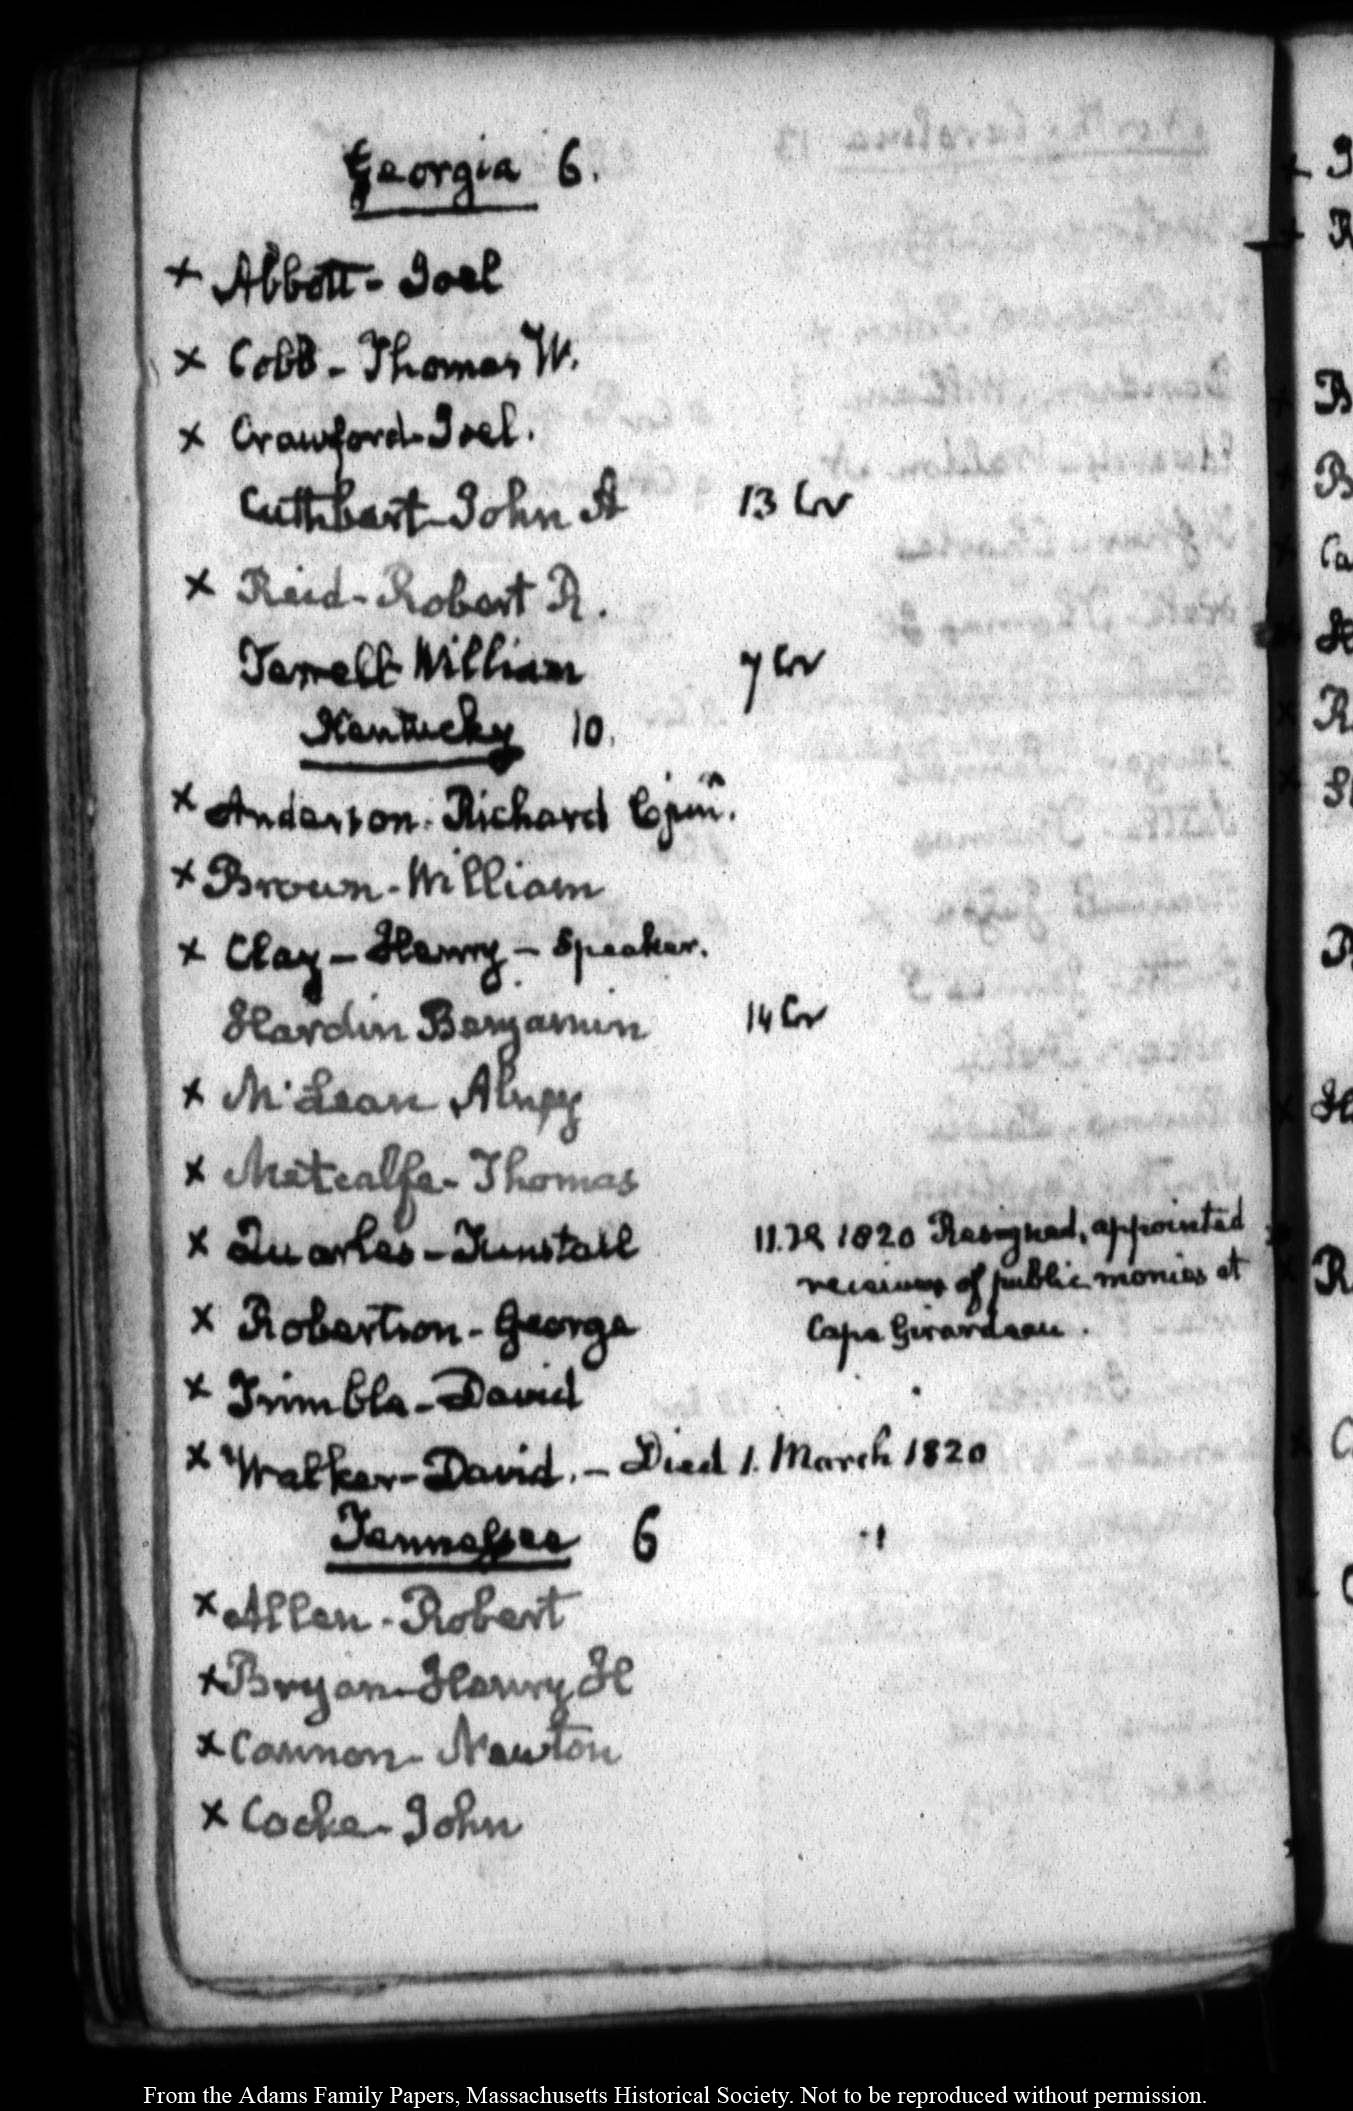 Georgia 6.
× Abbott - Joel
× Cobb - Thomas W.
× Crawford - Joel.
Cuthbert - John A 13 Cr
× Reid - Robert R.
Terrell - William 7 Cr
Kentucky 10.
× Anderson - Richard C jun.r
× Brown - William
× Clay - Henry - Speaker.
Hardin Benjamin 14 Cr
× McLean Alney
× Metcalfe - Thomas
× Quarles - Tunstall 1820 Resigned, appointed
receiver of public monies at
× Robertson - George Cape Girardeau.
× Trimble - David
× Walker - David. - Died 1. March 1820
Tennessee 6
× Allen - Robert
× Bryan - Henry H
× Cannon - Newton
× Cocke - John
From the Adams Family Papers, Massachusetts Historical Society. Not to be reproduced without permission.